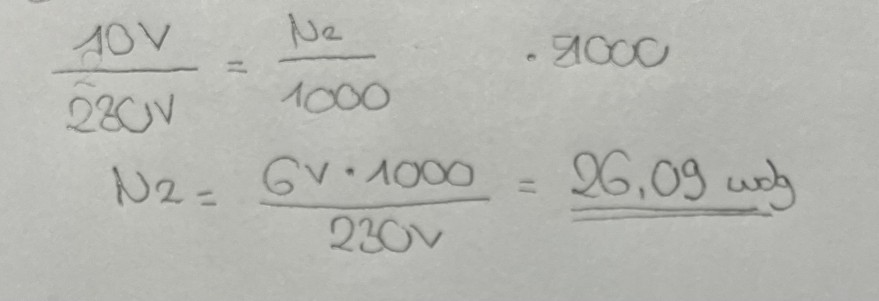 10V / 230V = N2 / 1000 · 1000
N2 = 6V · 1000 / 230V = 26,09 wdg